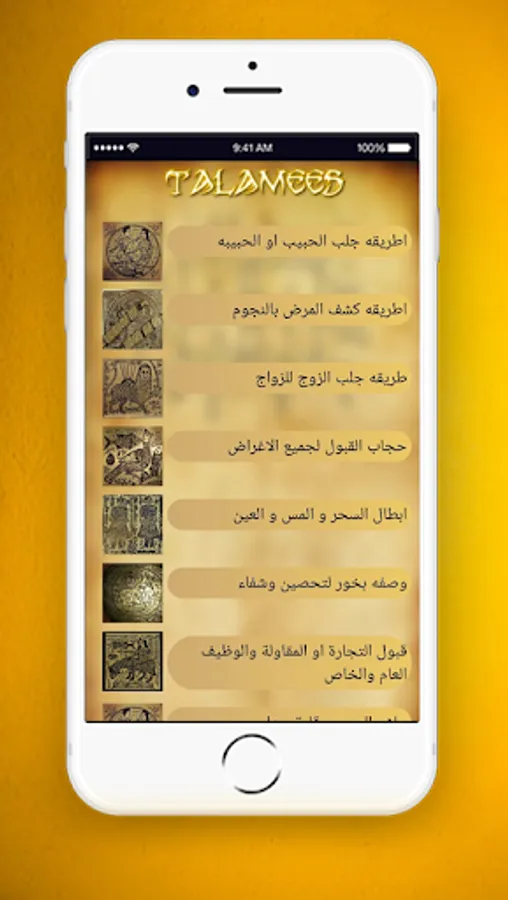 9:41 AM
100%
TALAMEES
اطريقه جلب الحبيب او الحبيبه
اطريقه كشف المرض بالنجوم
طريقه جلب الزوج للزواج
حجاب القبول لجميع الاغراض
ابطال السحر و المس و العين
وصفه بخور لتحصين وشفاء
قبول التجارة او المقاولة والوظيف
العام والخاص